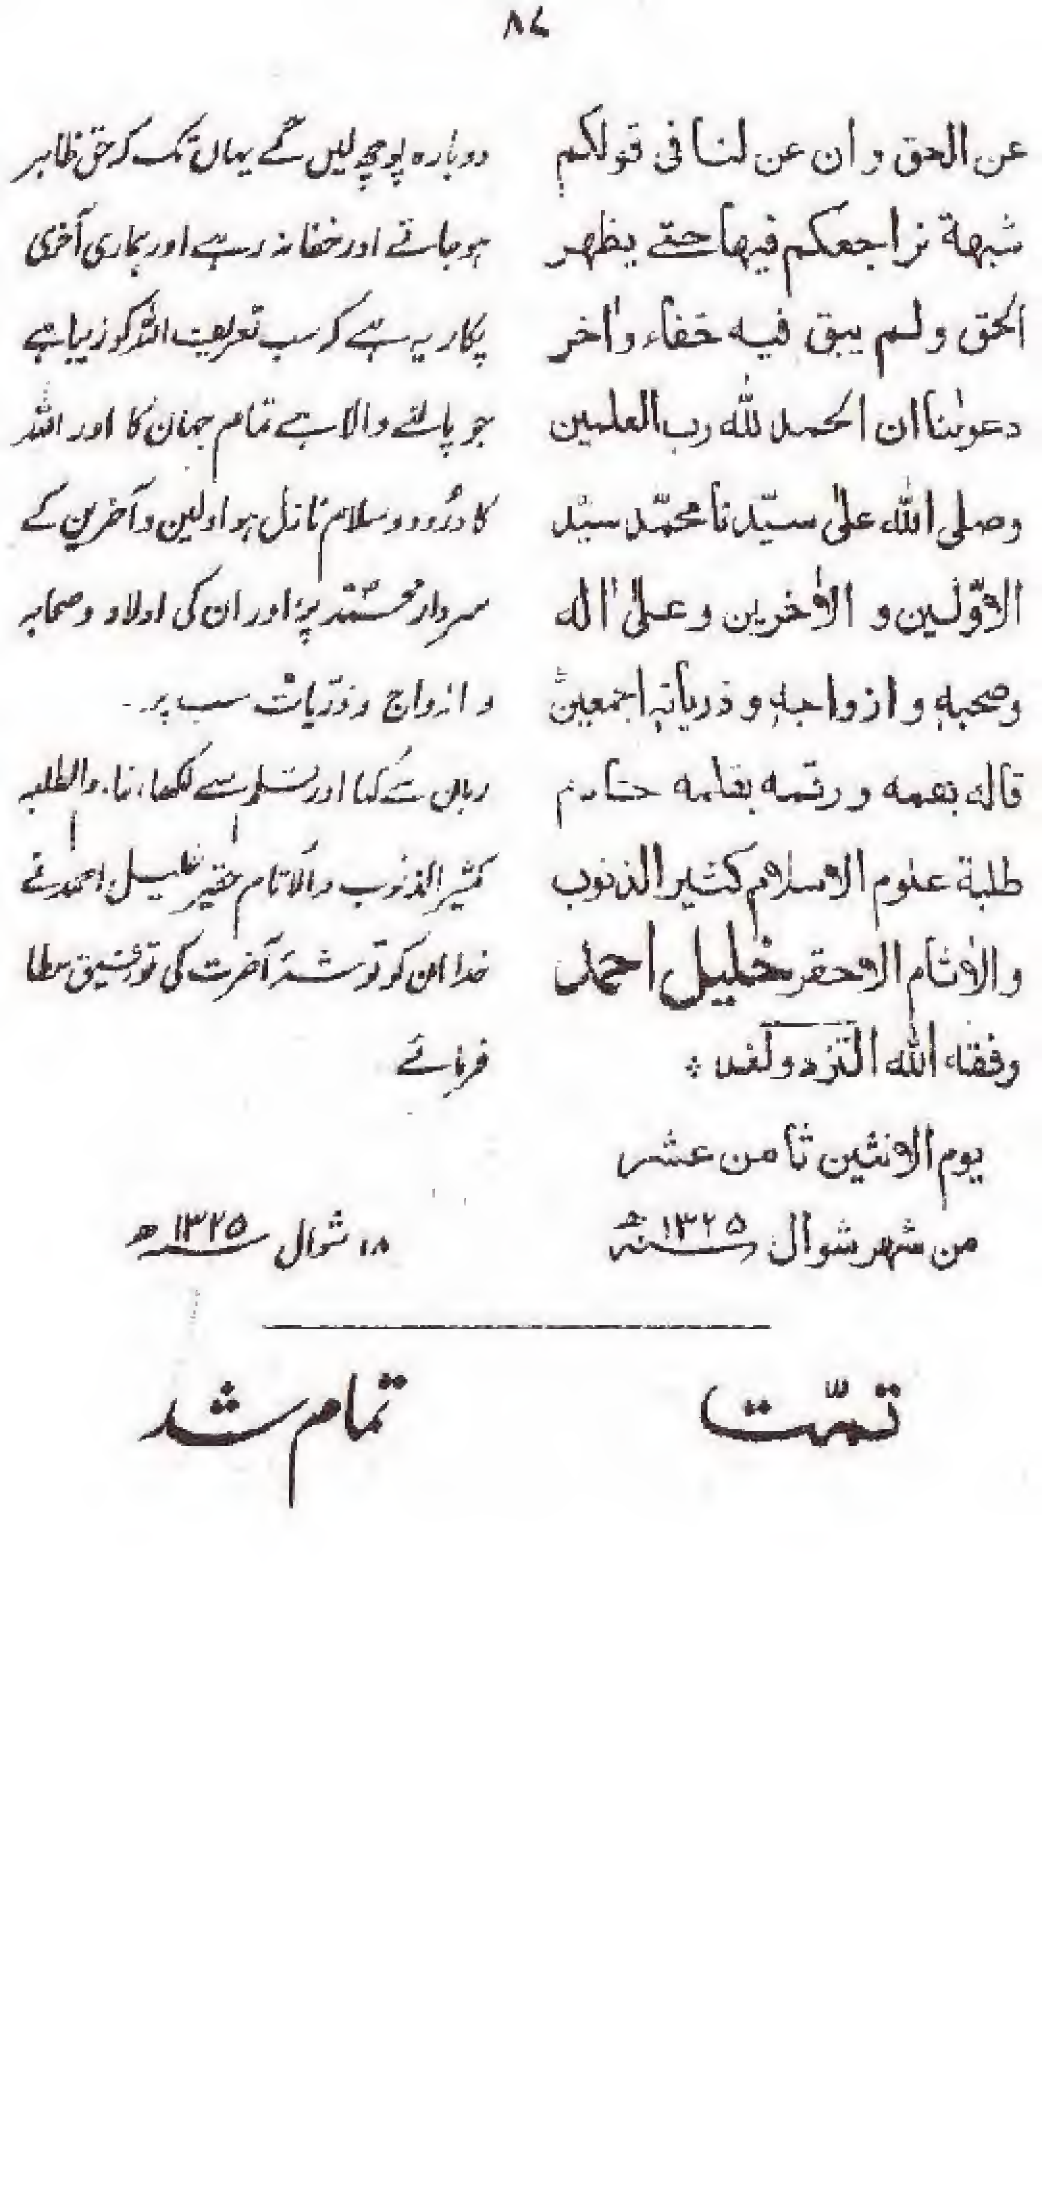 ۸۷
عن الحق وان عن لنا فی قولکم
شبهة نراجعکم فیها حتے یظهر
الحق ولم یبق فیه خفاء واٰخر
دعوٰىنا ان الحمد لله رب العلمین
وصلی الله علیٰ سیّدنا محمّد سیّد
الاوّلین و الاٰخرین وعلیٰ اٰله
وصحبهٖ و ازواجهٖ و ذریاتهٖ اجمعین
قاله بفمه ورقمه بقلمه خادم
طلبة علوم الاسلام کثیر الذنوب
والاٰثام الاحقر خلیل احمد
وفقه الله التزود لغد ؞
یوم الاثنین ثامن عشر
من شهر شوال ۱۳۲۵ سنه ھ
تمّت
دوبارہ پوچھ لیں گے یہاں تک کہ حق ظاہر
ہو جائے اور خفا نہ رہے اور ہماری آخری
پکار یہ ہے کہ سب تعریف اللہ کو زیبا ہے
جو پالنے والا ہے تمام جہان کا اور اللہ
کا درُود و سلام نازل ہو اولین و آخرین کے
سردار محمّد پر اور ان کی اولاد و صحابہ
و ازواج و ذرّیات سب پر۔
زبان سے کہا اور قلم سے لکھا، خادم الطلبہ
کثیر الذنوب والآثام حقیر خلیل احمد نے
خدا ان کو توشۂ آخرت کی توفیق عطا
فرمائے
۱۸ شوال ۱۳۲۵ ھ
تمام شد